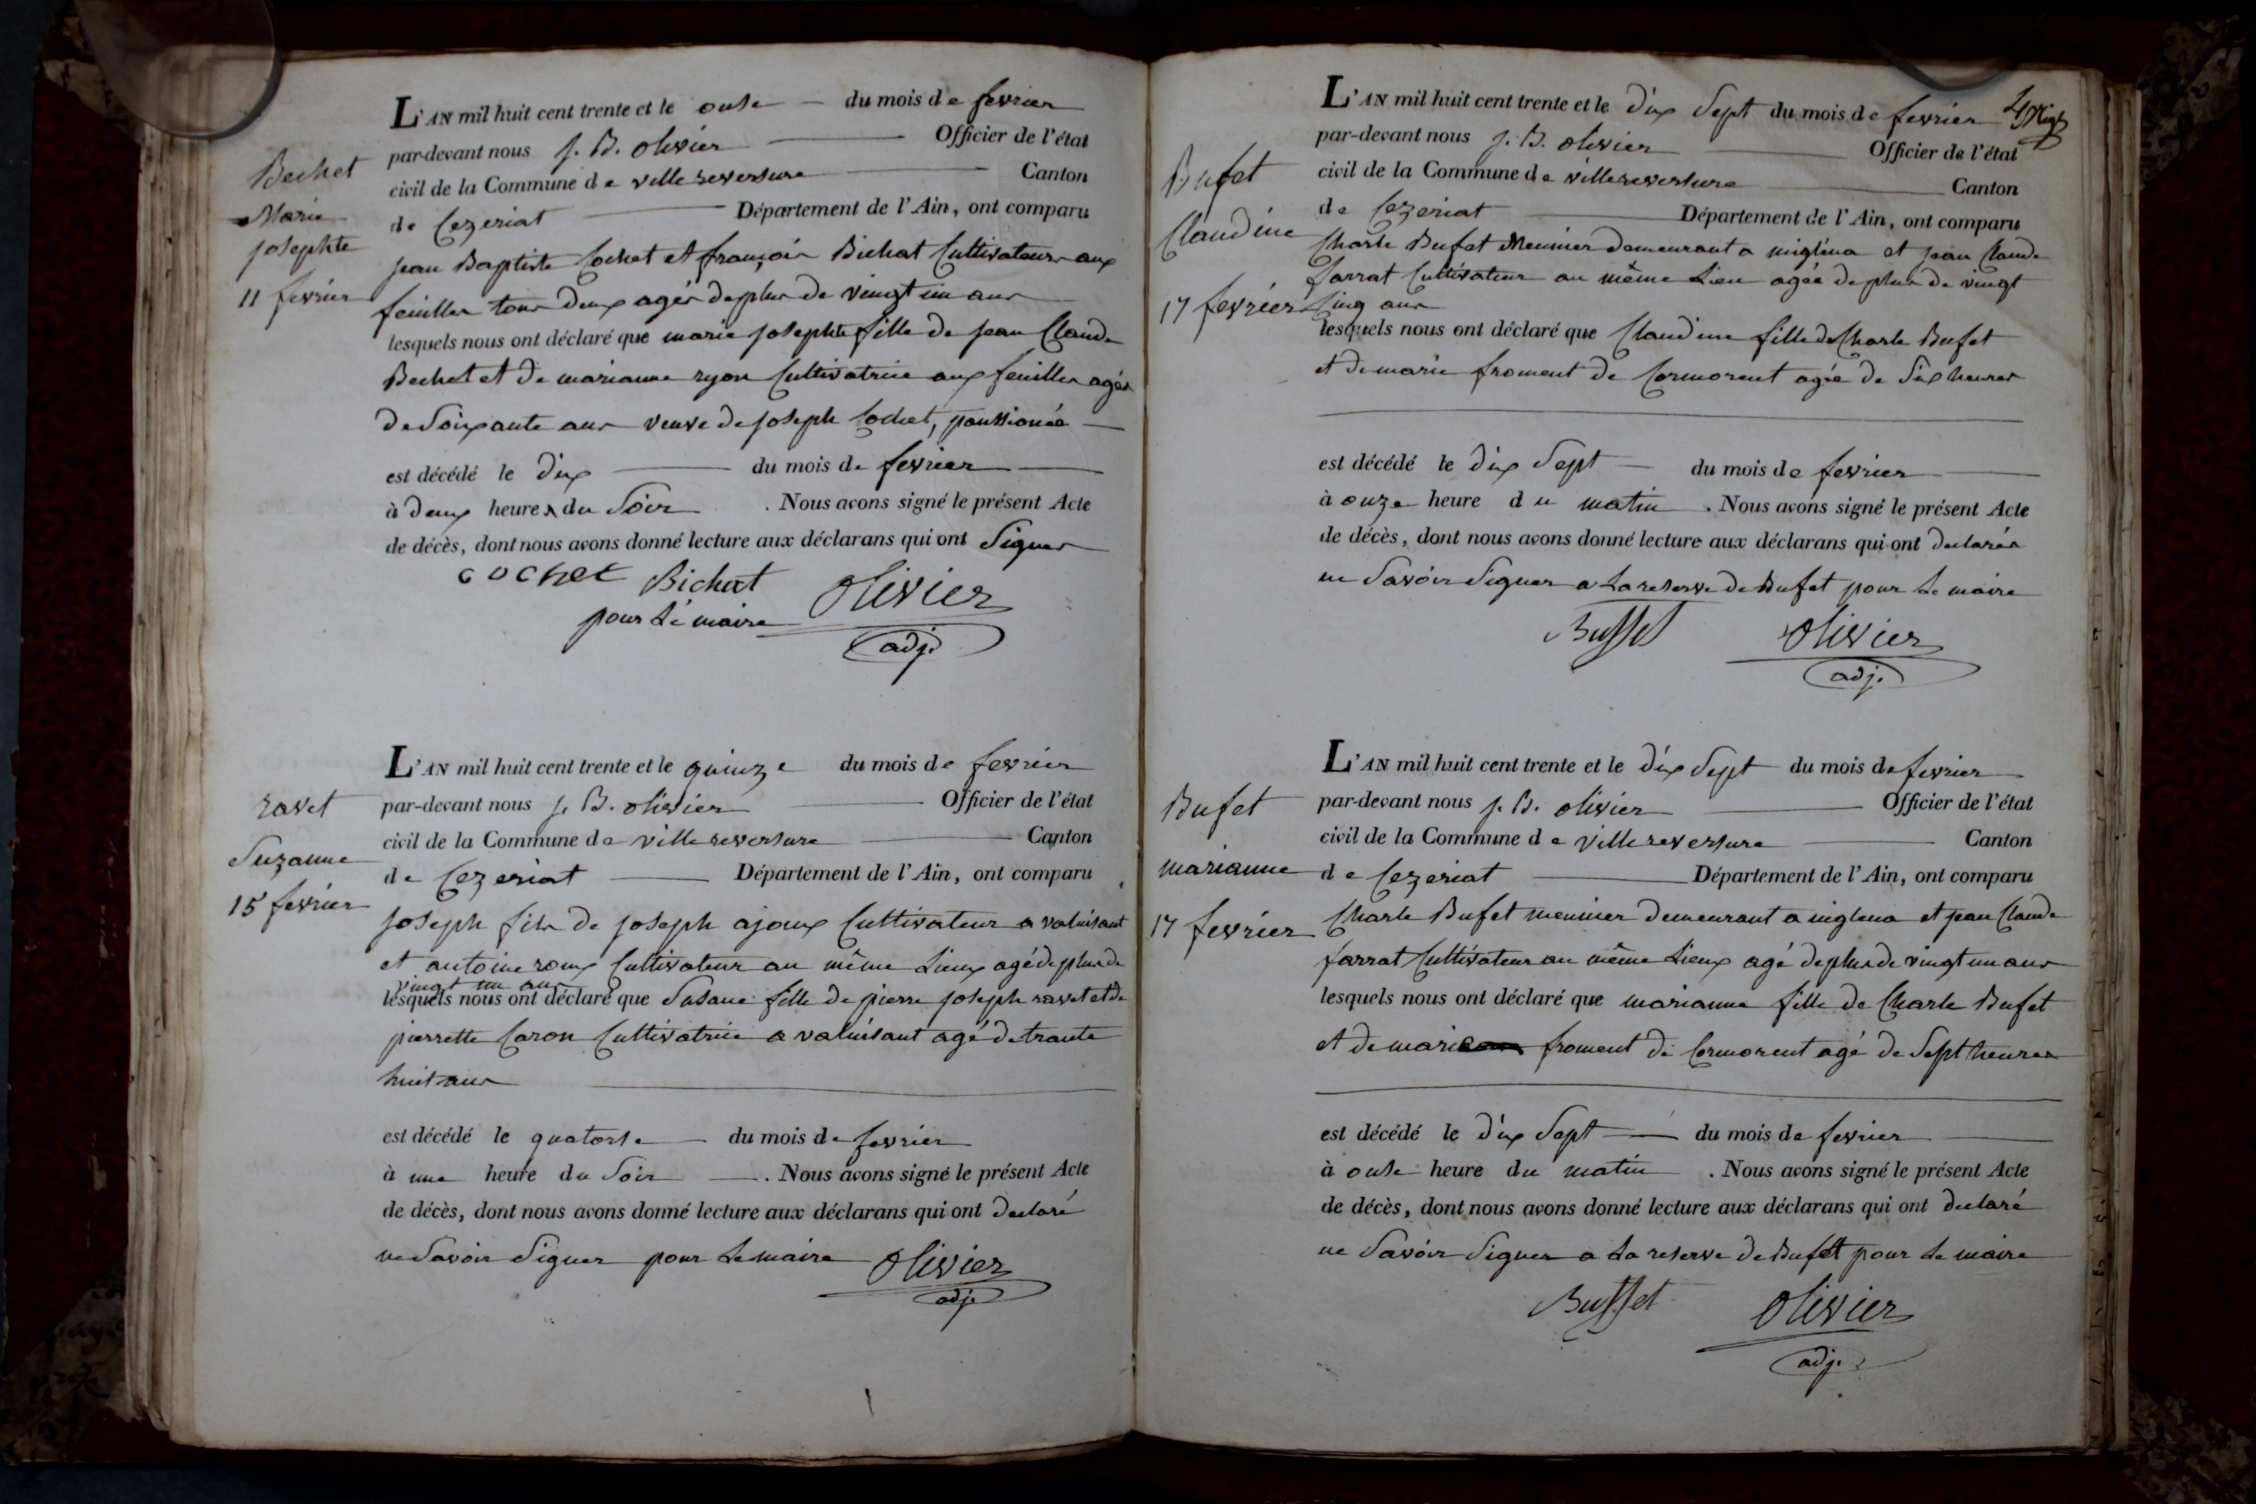 Bechet
Marie
josephte
11 fevrier
L'AN mil huit cent trente et le onse du mois de fevrier
par-devant nous J. B. olivier Officier de l'état
civil de la Commune de villereversure Canton
de Cezeriat Département de l'Ain, ont comparu
jean Baptiste Cochet et françois Bichat Cultivateurs aux
feuilles tous deux agés deplus de vingt un ans
lesquels nous ont déclaré que marie josephte fille de jean Claude
Bechet et de marianne ryon Cultivatrice aux feuilles agée
de Soixante ans veuve de joseph Cochet, panssionée
est décédé le dix du mois de fevrier
à deux heures du Soir . Nous avons signé le présent Acte
de décès, dont nous avons donné lecture aux déclarans qui ont Signer
cochet Bichat Olivier
pour Le maire adj.
ravet
Suzanne
15 fevrier
L'AN mil huit cent trente et le quinze du mois de fevrier
par-devant nous J. B. olivier Officier de l'état
civil de la Commune de villereversure Canton
de Cezeriat Département de l'Ain, ont comparu
joseph fils de joseph ajoux Cultivateur a valuisant
et antoine roux Cultivateur au même Lieux agé deplus de
vingt un ans
lesquels nous ont déclaré que Susane fille de pierre joseph ravet et de
pierrette Caron Cultivatrice a valuisant agé de trante
huit ans
est décédé le quatorse du mois de fevrier
à une heure du Soir . Nous avons signé le présent Acte
de décès, dont nous avons donné lecture aux déclarans qui ont declaré
ne Savoir Signer pour Le maire Olivier
adj.
Bufet
Claudine
17 fevrier
L'AN mil huit cent trente et le dix Sept du mois de fevrier
par-devant nous J. B. olivier Officier de l'état
civil de la Commune de villereversure Canton
de Cezeriat Département de l'Ain, ont comparu
Charle Bufet Meunier demeurant a niglena et jean Claude
farrat Cultivateur au même Lieu agée de plus de vingt
Cinq ans
lesquels nous ont déclaré que Claudine fille de Charle Bufet
et de marie froment de Cormorent agée de Six heures
est décédé le dix Sept du mois de fevrier
à onze heure du matin . Nous avons signé le présent Acte
de décès, dont nous avons donné lecture aux déclarans qui ont declarés
ne Savoir Signer a La reserve de Bufet pour Le maire
Buffet Olivier
adj.
Bufet
marianne
17 fevrier
L'AN mil huit cent trente et le dix Sept du mois de fevrier
par-devant nous J. B. olivier Officier de l'état
civil de la Commune de villereversure Canton
de Cezeriat Département de l'Ain, ont comparu
Charle Bufet meunier demeurant a niglena et jean Claude
farrat Cultivateur au même Lieux agé deplus de vingt un ans
lesquels nous ont déclaré que marianne fille de Charle Bufet
et de marie froment de Cormorent agé de Sept heures
est décédé le dix Sept du mois de fevrier
à onse heure du matin . Nous avons signé le présent Acte
de décès, dont nous avons donné lecture aux déclarans qui ont declaré
ne Savoir Signer a La reserve de Bufet pour Le maire
Buffet Olivier
adj.